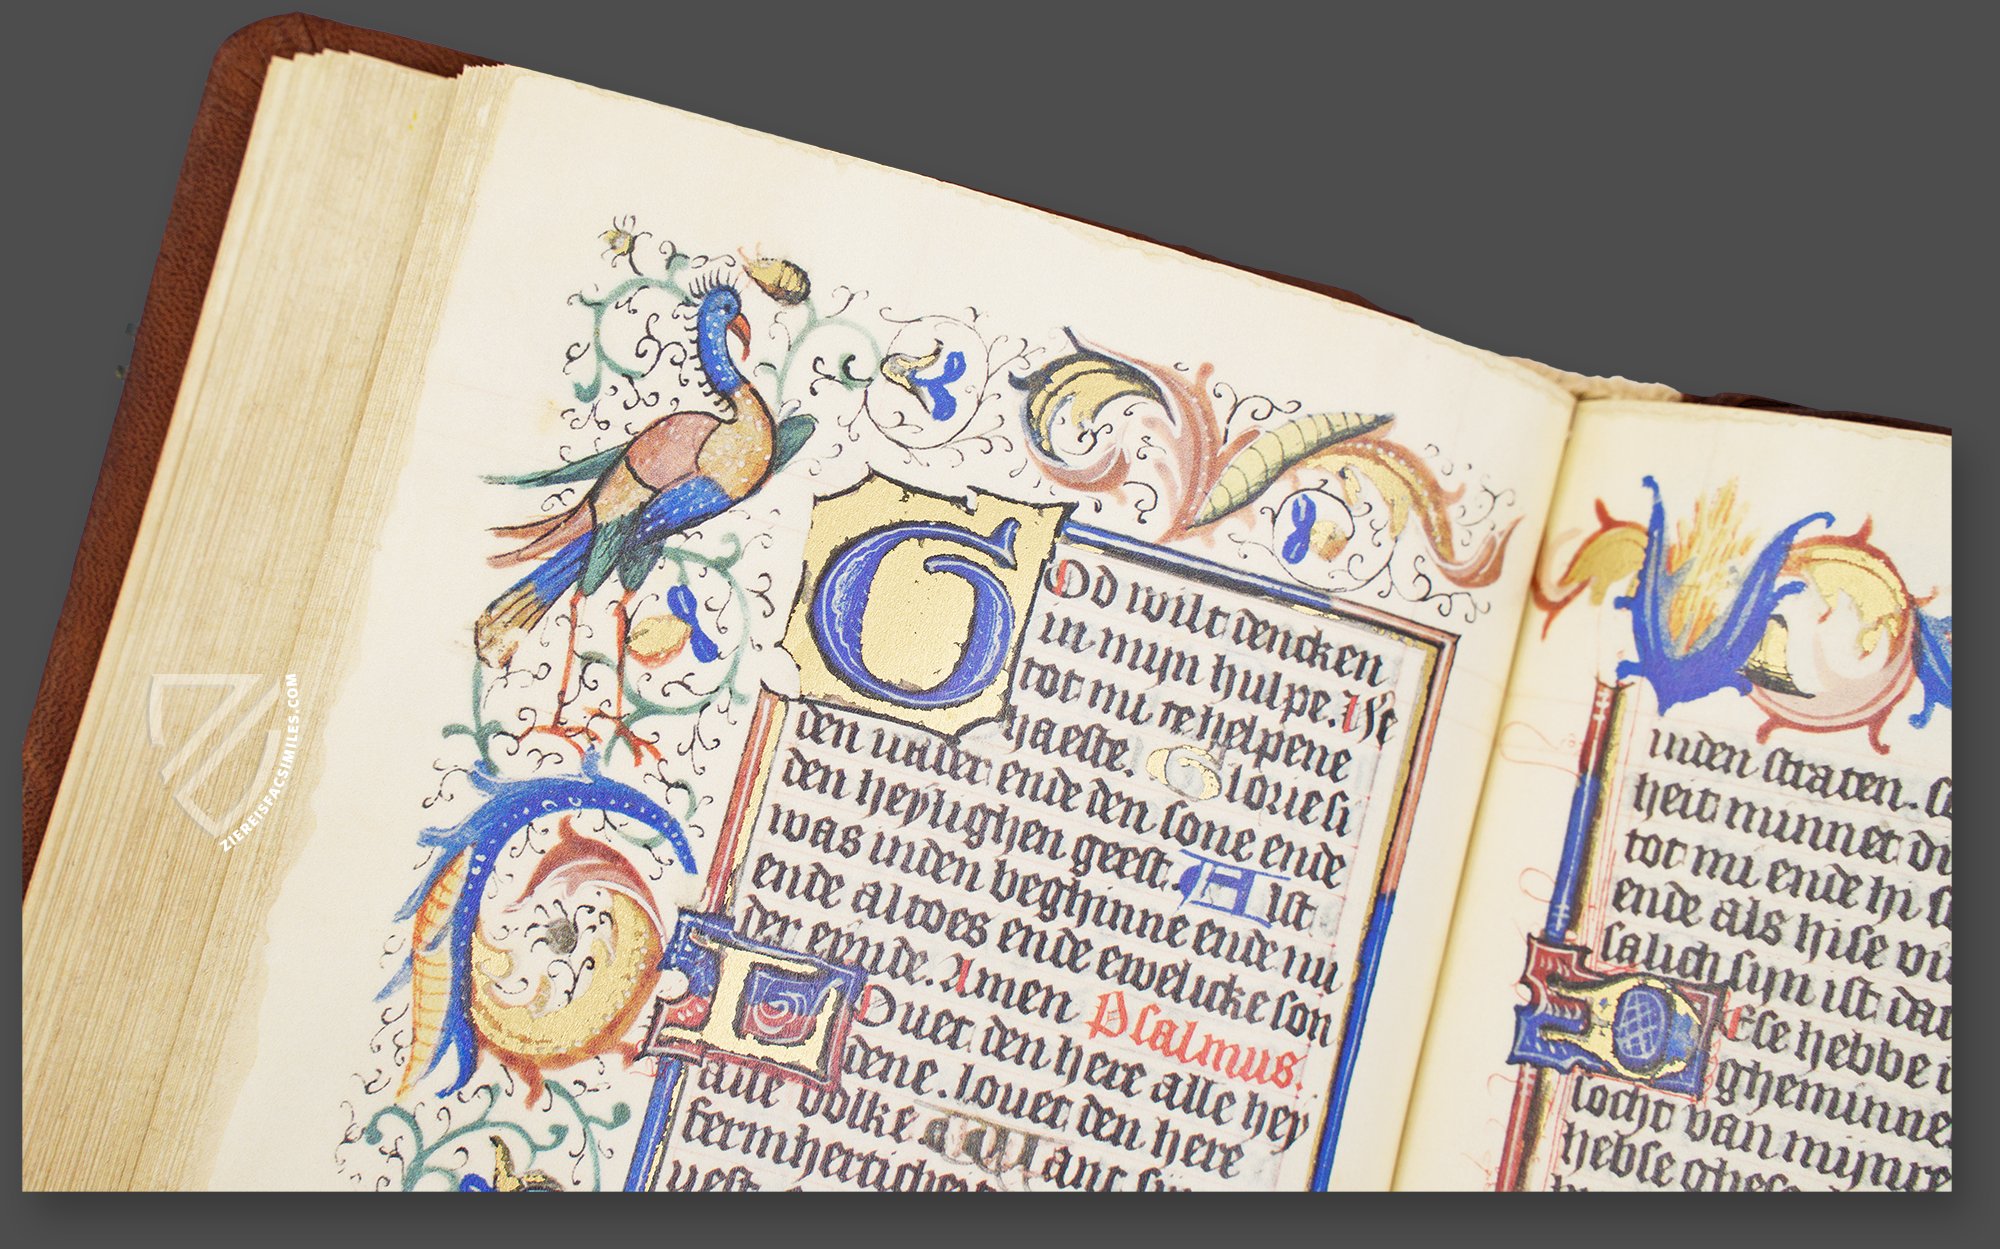 GOd wilt dencken
in mijn hulpe. He
tot mi te helpene
haeste. Glorie si
den uader ende den sone ende
den heylighen geest. Alst
was inden beghinne ende nu
ende altoes ende ewelicke son
der eynde. Amen Psalmus.
LOuet den here alle hey
dene. louet den here
alle volke. Want
fermherticheit
inden straten. 
heit minnet
tot mi ende hi
ende als hise
salich sijn ist dat
Ese hebbe
gheminne
locht van mijnre
hebse
ZIEREISFACSIMILES.COM